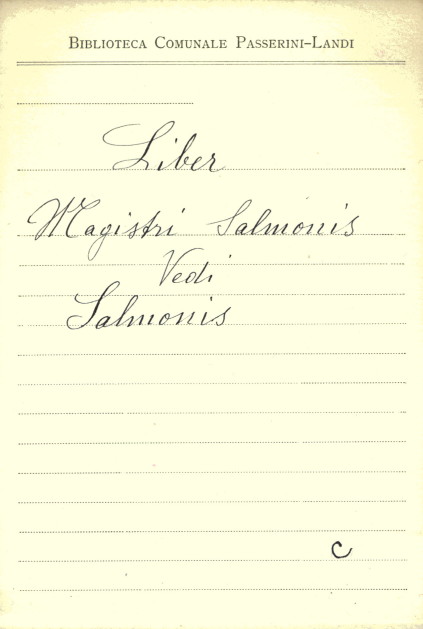 Biblioteca Comunale Passerini-Landi
Liber
Magistri Salmonis
Vedi
Salmonis
C